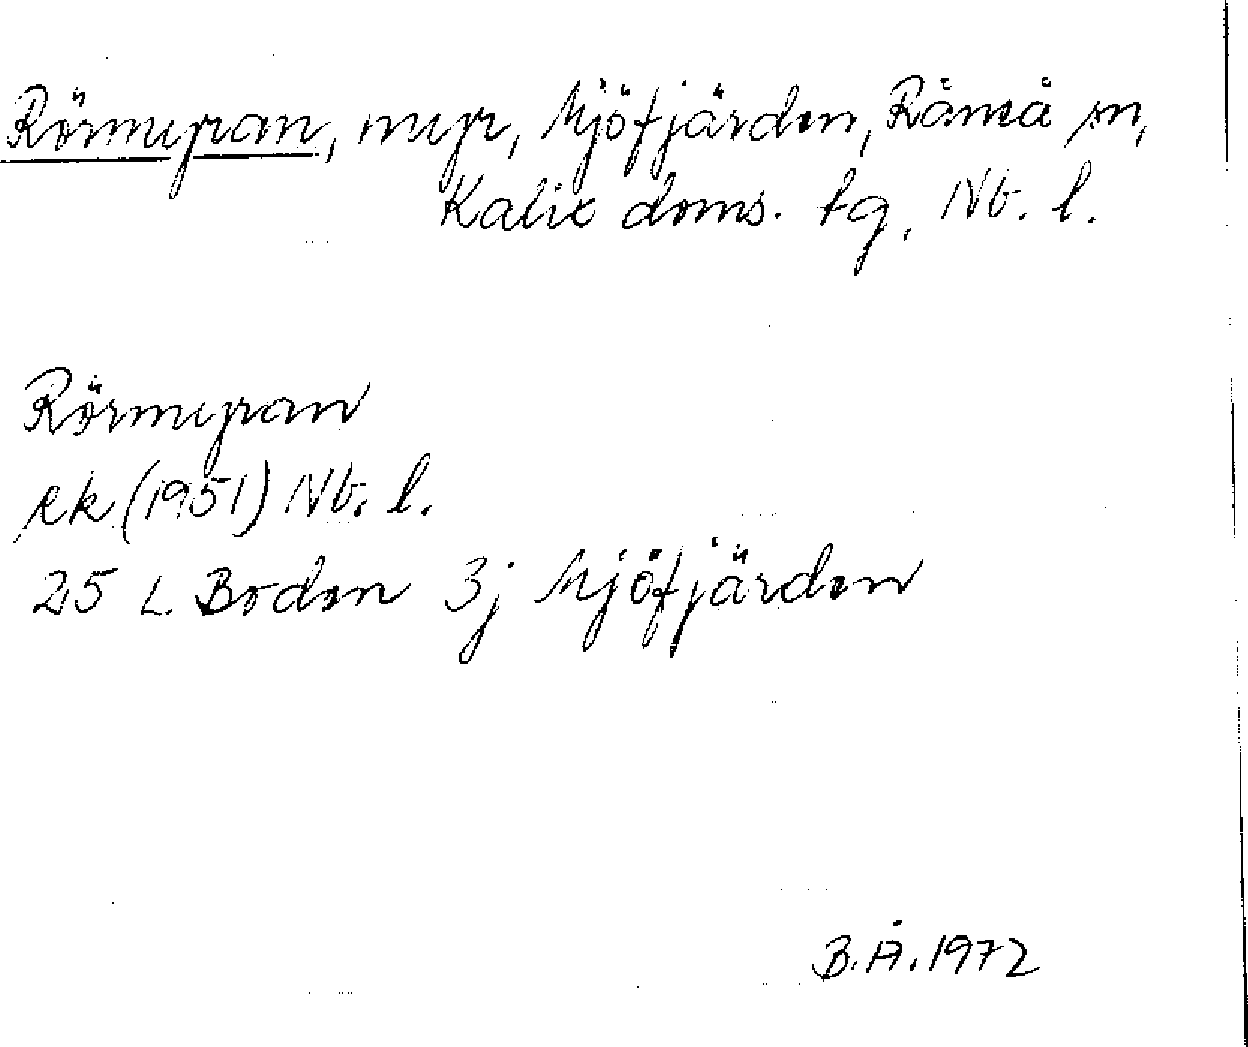 Rörmyran, myr, Mjöfjärden, Råneå sn,
Kalix doms. tg, Nb. l.
Rörmyran
ek (1951) Nb. l.
25 L Boden 3j Mjöfjärden
B.Å.1972